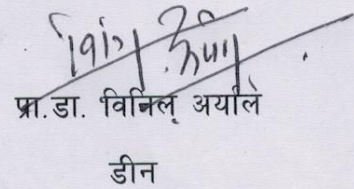 प्रा.डा. विनिल् अर्याल
डीन